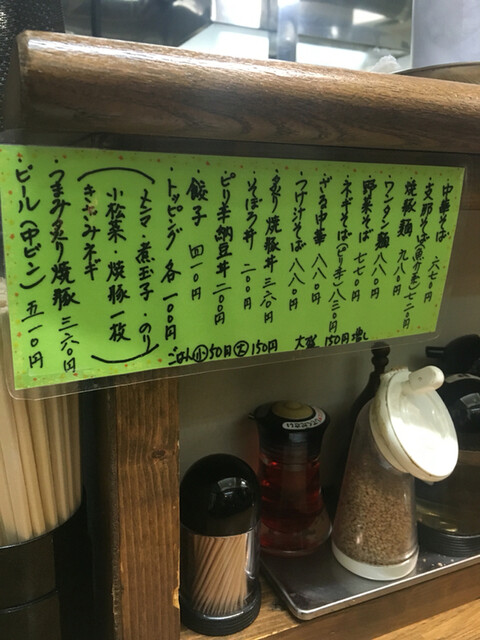 中華そば 六七〇円
支那そば(魚介系)七二〇円
焼豚麺 九八〇円
ワンタン麺 八八〇円
野菜そば 七七〇円
ネギそば(ピリ辛)八三〇円
ざる中華 八八〇円
つけ汁そば 八八〇円
炙り焼豚丼 三六〇円
そぼろ丼 二〇〇円
ピリ辛納豆丼 二〇〇円
餃子 四一〇円
トッピング 各一〇〇円
(メンマ・煮玉子・のり
小松菜・焼豚一枚
きざみネギ)
つまみ炙り焼豚 三六〇円
ビール(中ビン) 五一〇円
大盛 150円増し
ごはん小50円大150円